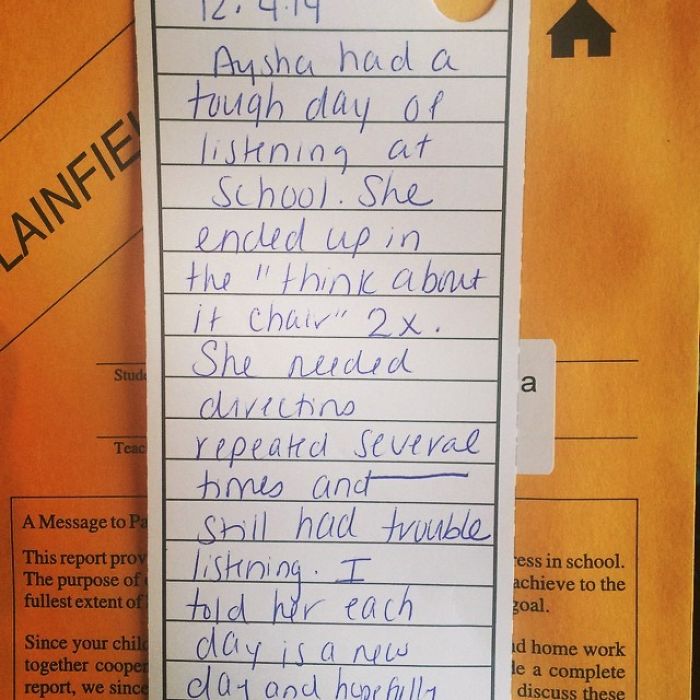 12.4.14
Aysha had a
tough day of
listening at
school. She
ended up in
the "think about
it chair" 2x.
She needed
directins
repeated several
times and
still had trouble
listening. I
told her each
day is a new
day and hopefully
LAINFIE
Stude
Teac
a
A Message to Pa
This report prov
The purpose of
fullest extent of
ress in school.
achieve to the
goal.
Since your chil
together cooper
report, we since
nd home work
de a complete
discuss these